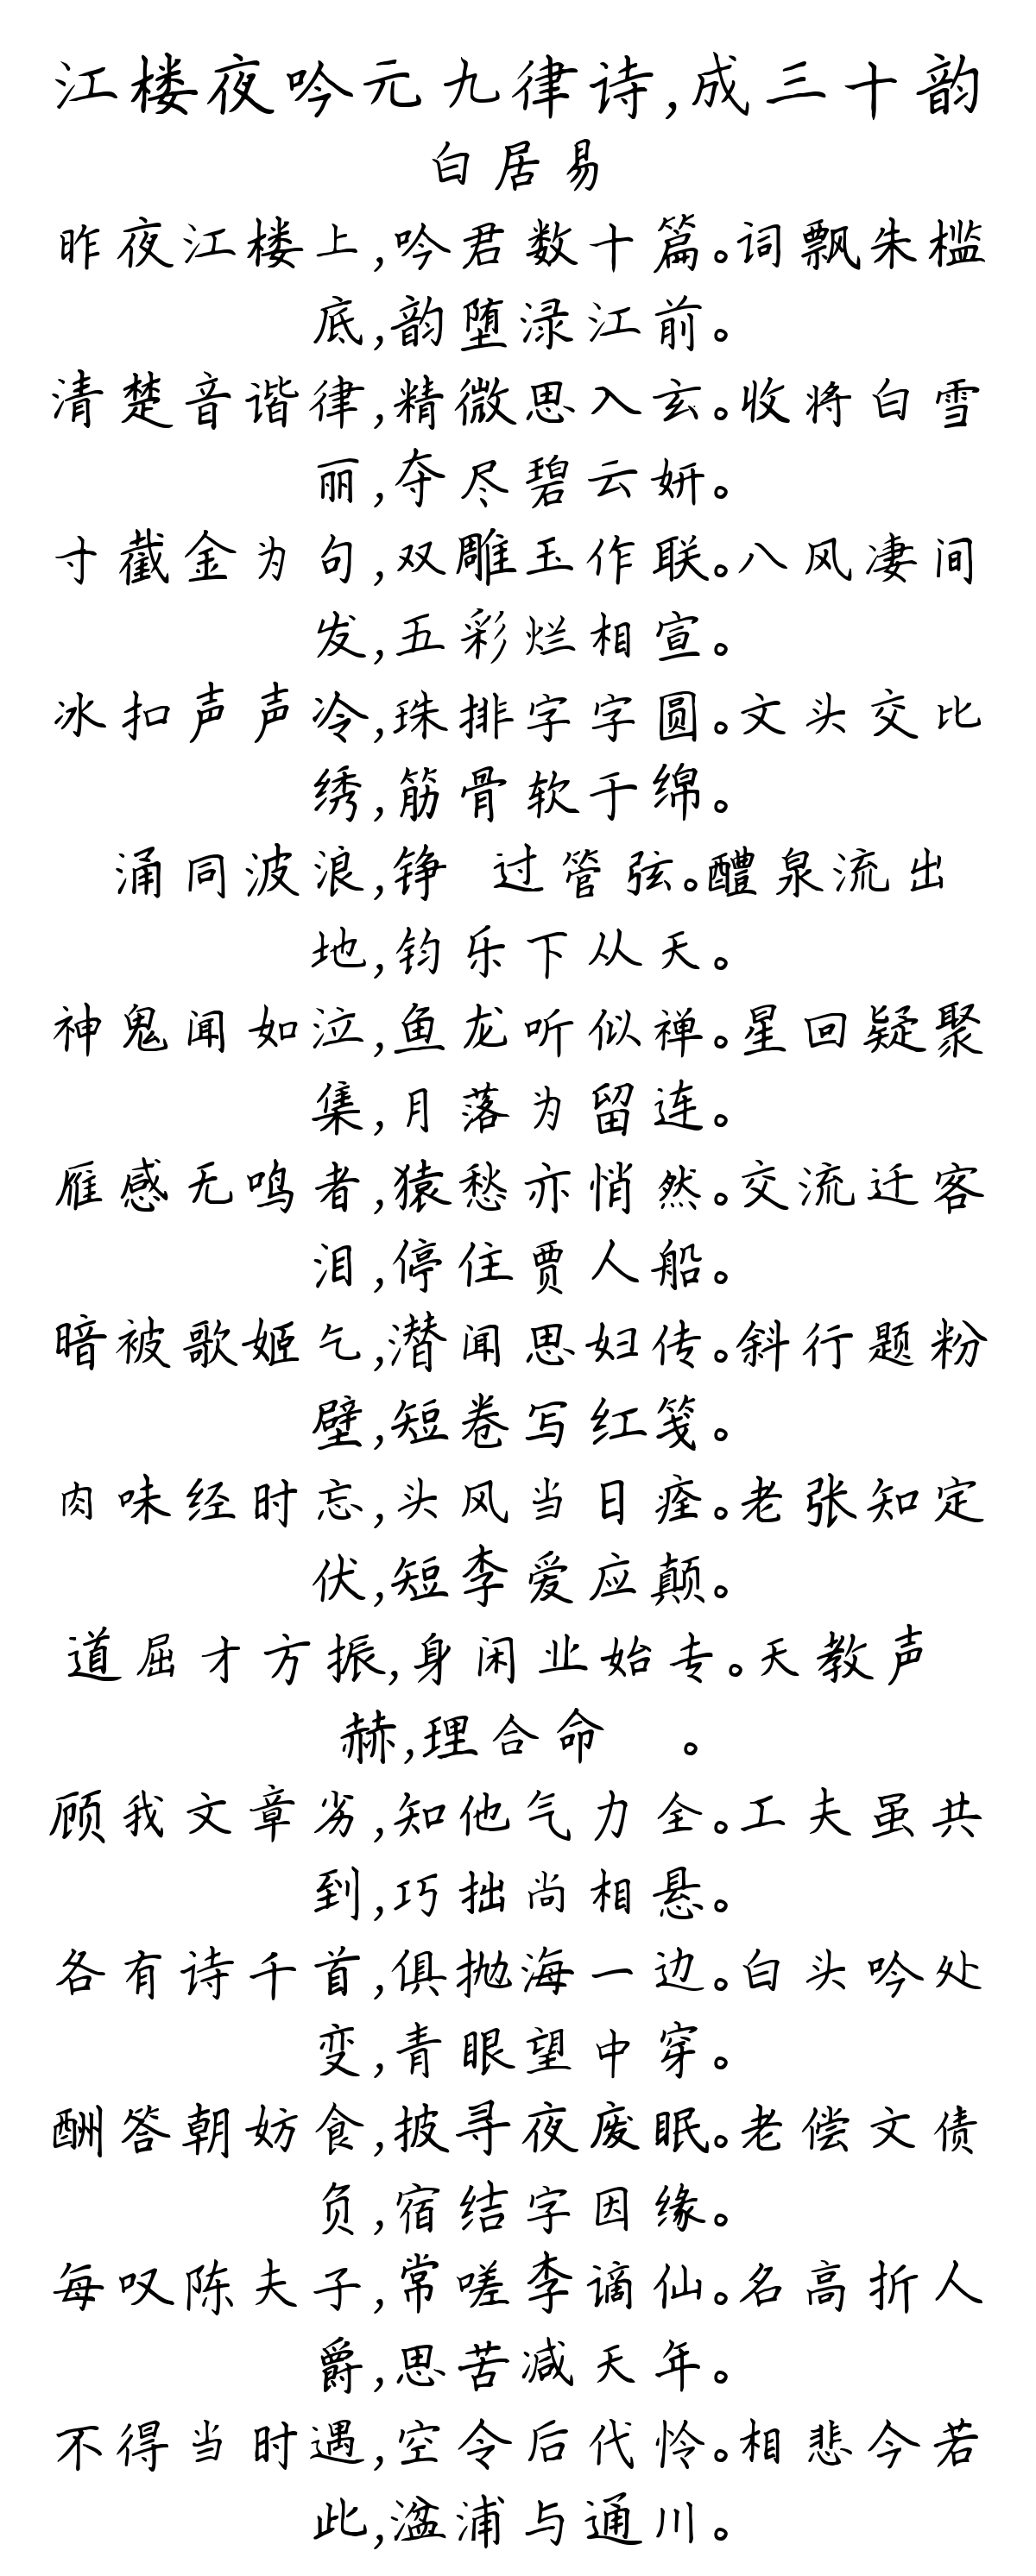 江楼夜吟元九律诗,成三十韵
白居易
昨夜江楼上,吟君数十篇。词飘朱槛
底,韵堕渌江前。
清楚音谐律,精微思入玄。收将白雪
丽,夺尽碧云妍。
寸截金为句,双雕玉作联。八风凄间
发,五彩烂相宣。
冰扣声声冷,珠排字字圆。文头交比
绣,筋骨软于绵。
涌同波浪,铮 过管弦。醴泉流出
地,钧乐下从天。
神鬼闻如泣,鱼龙听似禅。星回疑聚
集,月落为留连。
雁感无鸣者,猿愁亦悄然。交流迁客
泪,停住贾人船。
暗被歌姬乞,潜闻思妇传。斜行题粉
壁,短卷写红笺。
肉味经时忘,头风当日痊。老张知定
伏,短李爱应颠。
道屈才方振,身闲业始专。天教声
赫,理合命 。
顾我文章劣,知他气力全。工夫虽共
到,巧拙尚相悬。
各有诗千首,俱抛海一边。白头吟处
变,青眼望中穿。
酬答朝妨食,披寻夜废眠。老偿文债
负,宿结字因缘。
每叹陈夫子,常嗟李谪仙。名高折人
爵,思苦减天年。
不得当时遇,空令后代怜。相悲今若
此,湓浦与通川。